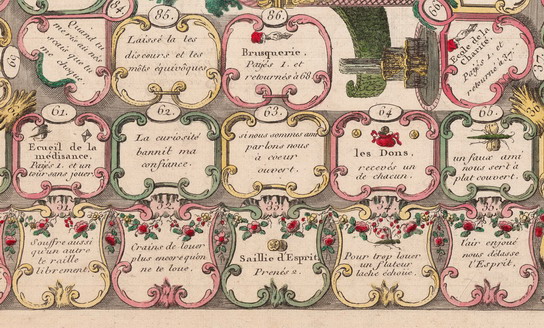 84.
85.
86.
Laissé la les
discours et les
môts équivoques
Brusquerie.
Paÿés 1. et
retournés à 68
Ecole de la
Charité.
Paÿés 5. et
retournés à 37.
61.
62.
63.
64
65.
Ecueil de la
médisance.
Paÿés 1. et un
tour sans jouer
La curiosité
bannit ma
confiance.
si nous sommes ami
parlons nous
à coeur
ouvert.
les Dons.
recevés un
de chacun.
un faux ami
nous sert à
plat couvert.
Souffre aussi
qu'un autre
te raille
librement
Crains de louer
plus encore qu'on
ne te loue.
Saillie d'Esprit
Prenés 2.
Pour trop louer
un flateur
lache échoue.
l'air enjoué
nous délasse
l'Esprit.